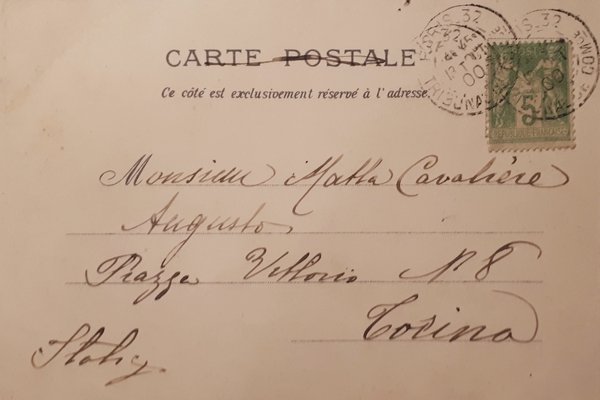 CARTE POSTALE
Ce côté est exclusivement réservé à l'adresse.
PARIS_32
TRIBUNAL
COMMERCE
00
5
REPUBLIQUE FRANÇAISE
Monsieur Matta Cavalière
Augusto,
Piazza Vittorio N 8
Torino
Italy